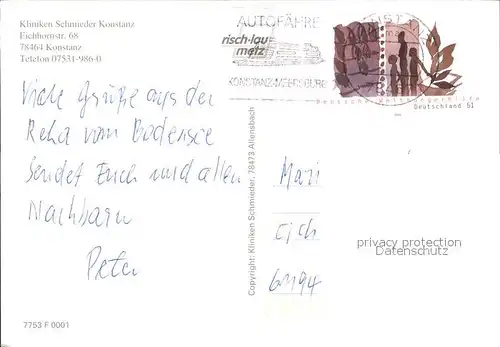 Kliniken Schmieder Konstanz
Eichhornstr. 68
78464 Konstanz
Telefon 07531-986-0
AUTOFÄHRE
KONSTANZ-MEERSBURG
Deutsche Welthungerhilfe
Deutschland 51
Viele Grüße aus der
Reha vom Bodensee
Sendet Euch und allen
Nachbarn
Peter
Copyright: Kliniken Schmieder, 78473 Allensbach
Mari
Eich
privacy protection
Datenschutz
7753 F 0001